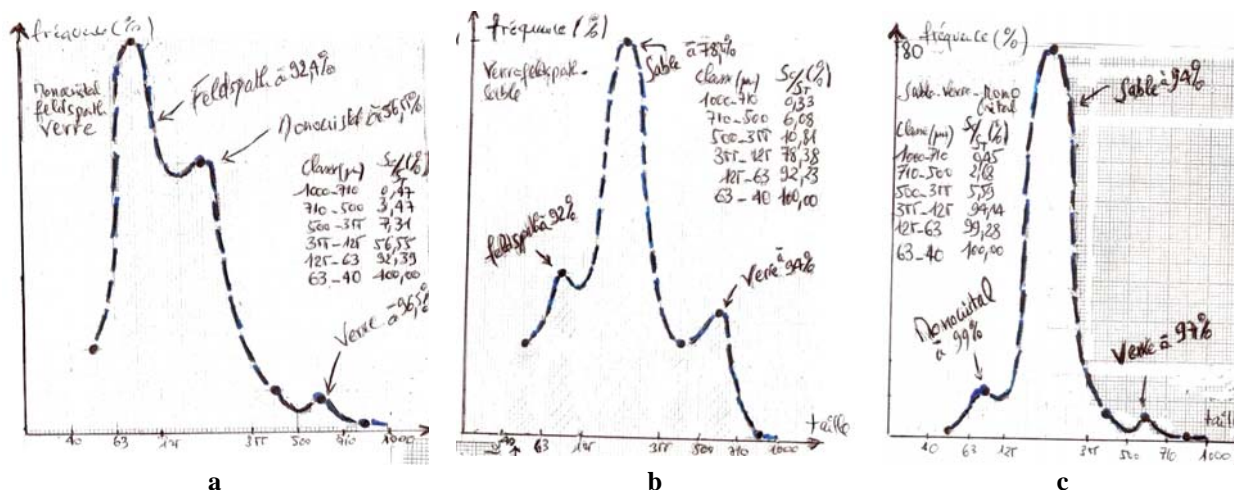 fréquence (%)
Monocristal
feldspath
Verre
Feldspath à 92,4%
Monocristal à 56,5%
Classe (µ) Sc/ST (%)
1000-710 0,47
710-500 3,47
500-355 7,31
355-125 56,55
125-63 92,39
63-40 100,00
Verre à 96,5%
40 63 125 355 500 710 1000
a
fréquence (%)
Verre feldspath.
Sable
Sable à 78,4%
Classe (µ) Sc/ST (%)
1000-710 0,33
710-500 6,08
500-355 10,81
355-125 78,38
125-63 92,23
63-40 100,00
feldspath à 92%
Verre à 94%
taille
40 63 125 355 500 710 1000
b
fréquence (%)
80
Sable à 94%
Sable-Verre-Mono
cristal
Classe (µ) Sc/ST (%)
1000-710 0,45
710-500
500-355 5,59
355-125 94,14
125-63 99,28
63-40 100,00
Monocristal
à 99%
Verre à 97%
taille
40 63 125 355 500 710 1000
c